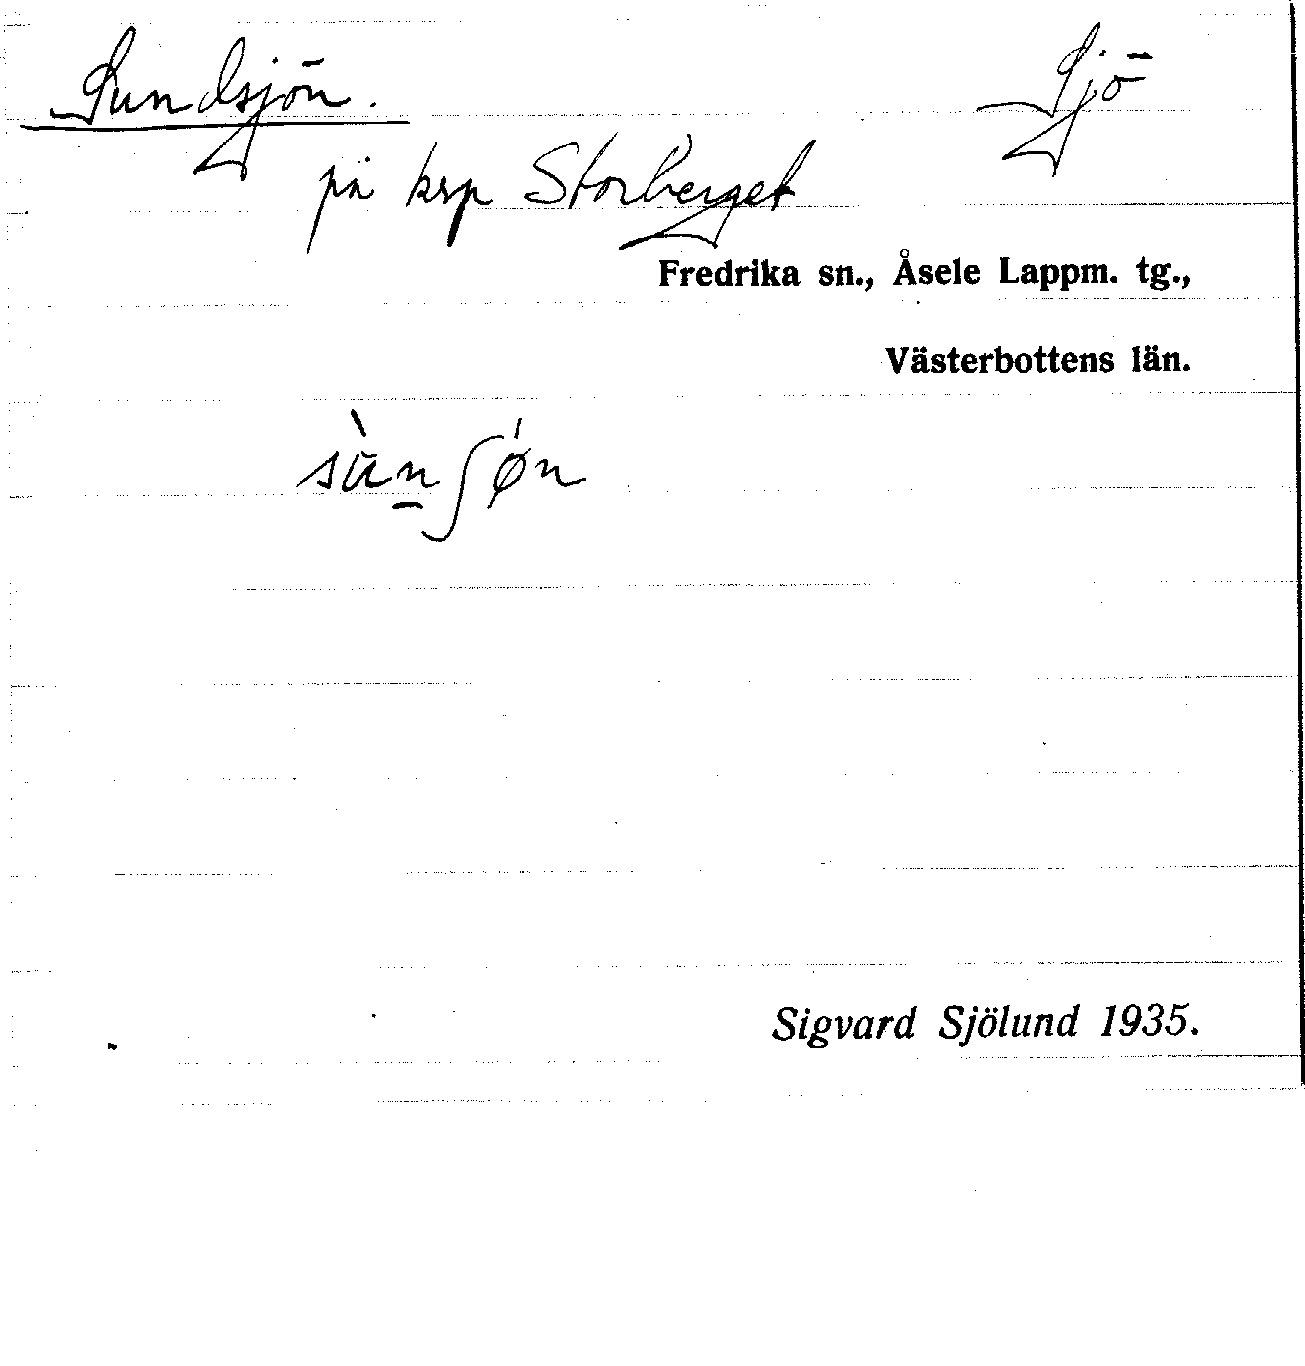 Sundsjön. Sjö
på krp Storberget
Fredrika sn., Åsele Lappm. tg.,
Västerbottens län.
Sigvard Sjölund 1935.